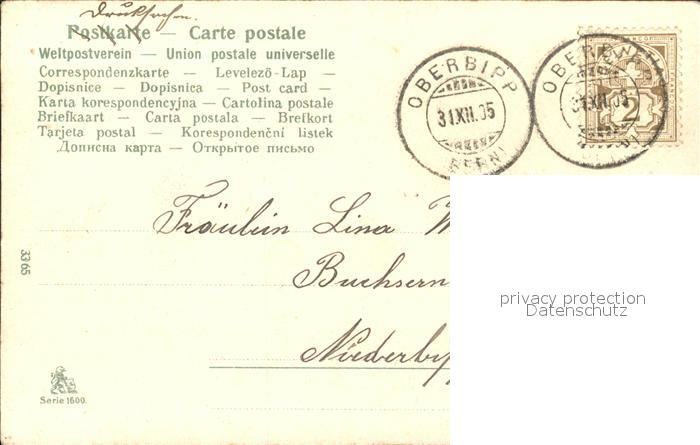 Drucksachen.
Postkarte — Carte postale
Weltpostverein — Union postale universelle
Correspondenzkarte — Levelezö-Lap —
Dopisnice — Dopisnica — Post card —
Karta korespondencyjna — Cartolina postale
Briefkaart — Carta postala — Brefkort
Tarjeta postal — Korespondenční listek
Дописна карта — Открытое письмо
OBERBIPP
31.XII.05
(BERN)
OBERB
31.XII.05
2
Fräulein Lina W
Buchsern
Niederbipp
3365
privacy protection
Datenschutz
Serie 1600.